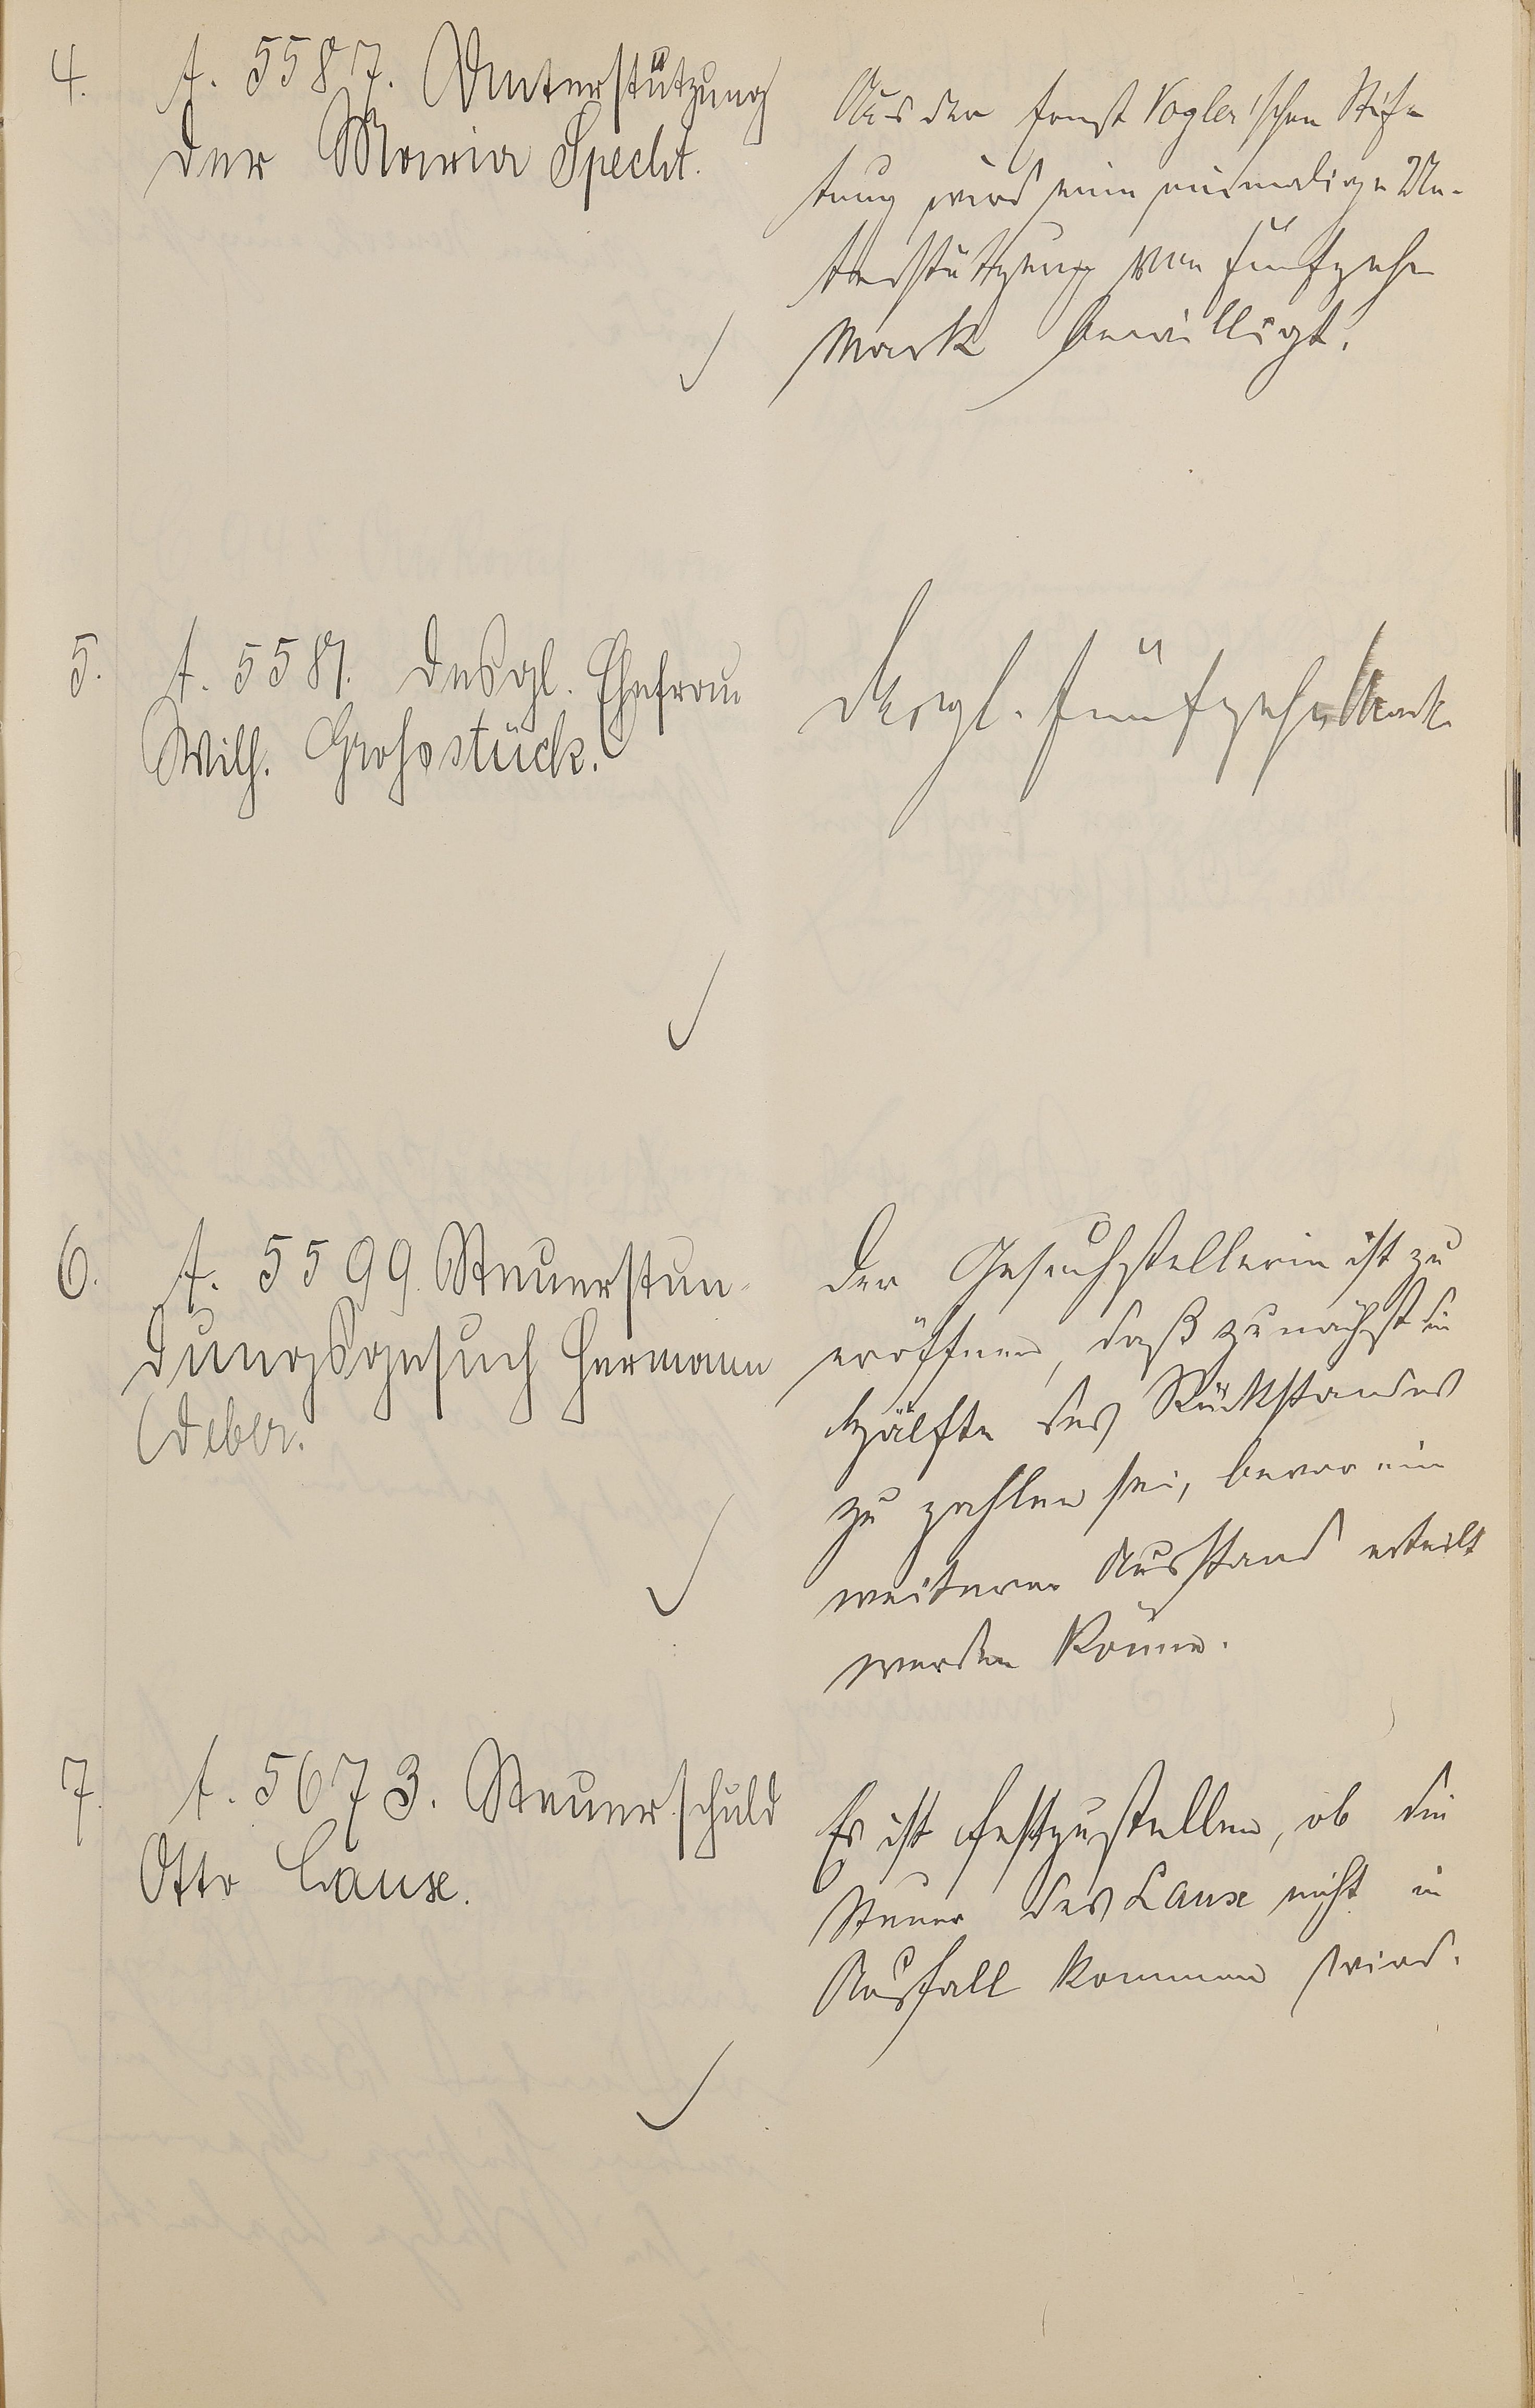 4.
t. 5587. Unterstützung
der Maria Specht.
Aus der Ernst Vogler'schen Stif-
tung wird eine einmalige Un-
terstützung von fünfzehn
Mark bewilligt.
5.
t. 5581. desgl. Ehefrau
Wilh. Grohsstück.
desgl. fünfzehn Mark
6.
t. 5599. Steuerstun-
dungsgesuch Hermann
Weber.
Der Gesuchstellerin ist zu
eröffnen, daß zunächst die
Hälfte des Rückstandes
zu zahlen sei, bevor ein
weiterer Ausstand erteilt
werden könne.
7.
t. 5673. Steuerschuld
Otto Lause.
Es ist festzustellen, ob die
Steuer des Lause nicht in
Ausfall kommen wird.